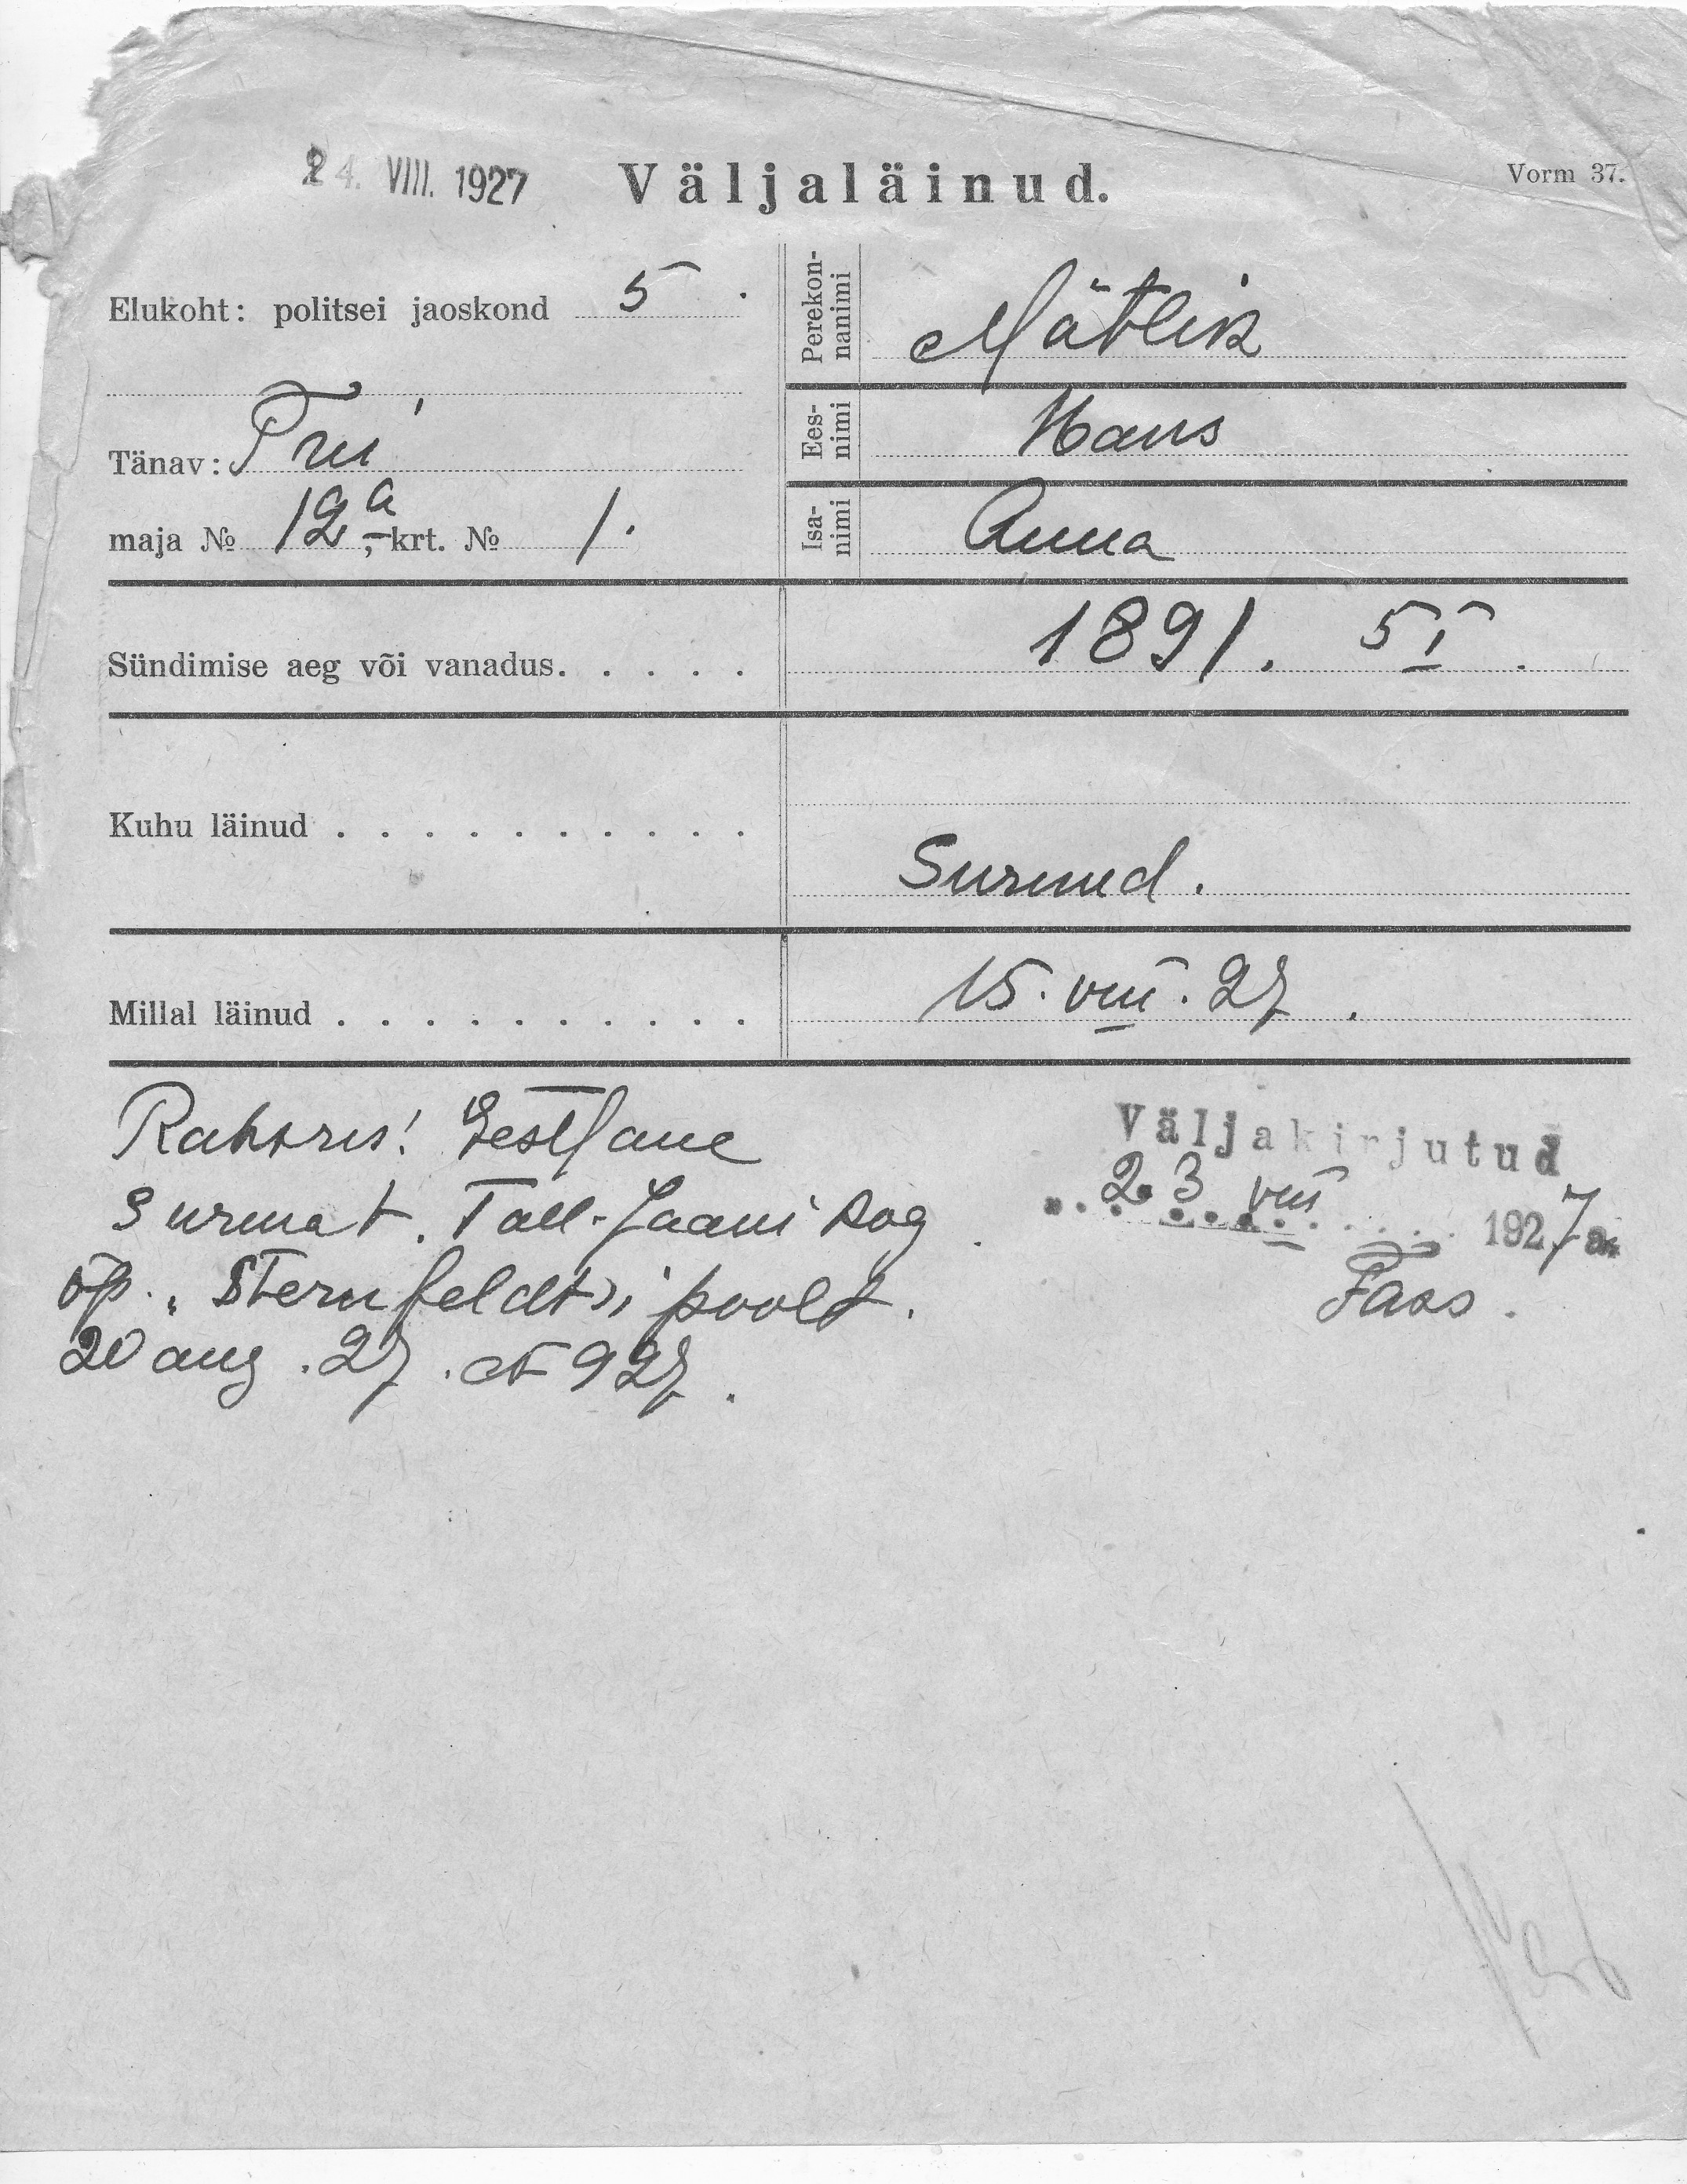 24. VIII. 1927 Väljaläinud. Vorm 37.
Elukoht: politsei jaoskond 5.
Tänav:
maja № 12a, krt. № 1.
Perekonnanimi Mätlik
Eesnimi Hans
Isanimi Anna
Sündimise aeg või vanadus. . . . . 1891. 5 I.
Kuhu läinud . . . . . . . . . . . Surnud.
Millal läinud . . . . . . . . . . . 15. VIII. 27.
Eestlane
Surmat. Tall-Jaani kog
õp. „Sternfeldt"i poolt.
20 aug. 27. № 927.
Väljakirjutud
23 VIII 1927 a.